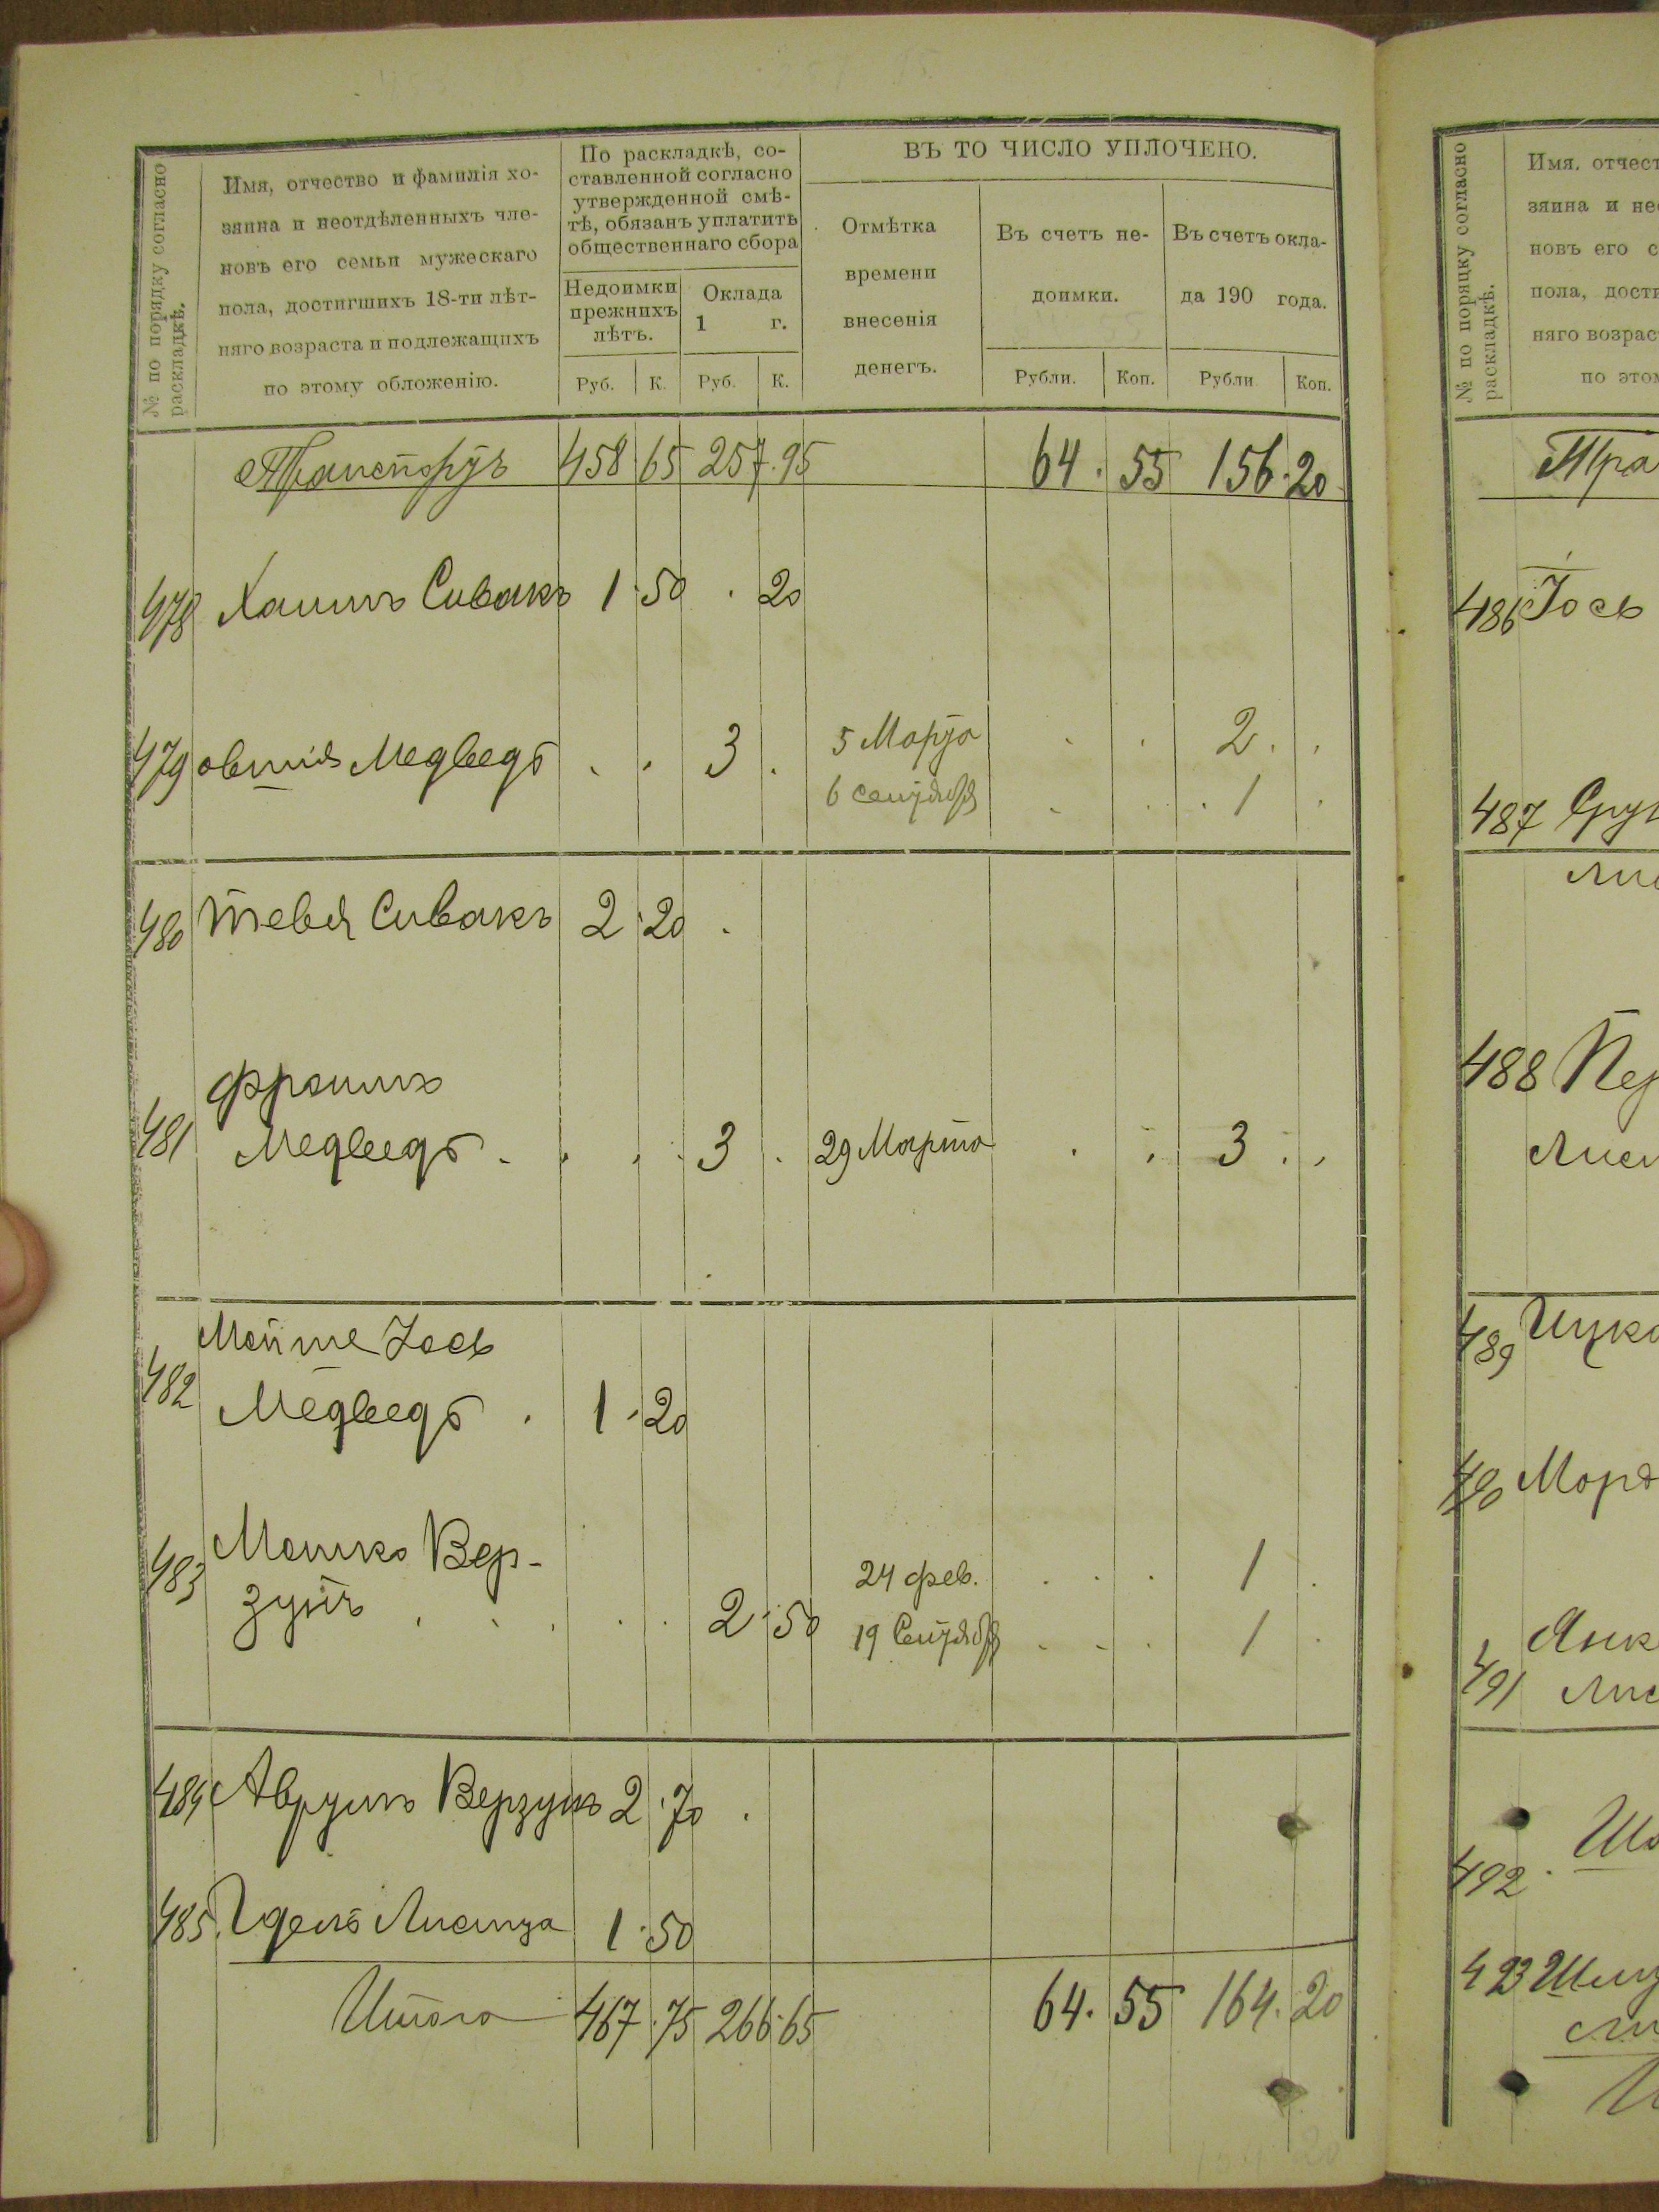 № по порядку согласно раскладкѣ.
Имя, отчество и фамилія хо-
зяина и неотдѣленныхъ чле-
новъ его семьи мужескаго
пола, достигшихъ 18-ти лѣт-
няго возраста и подлежащихъ
по этому обложенію.
По раскладкѣ, со-
ставленной согласно
утвержденной смѣ-
тѣ, обязанъ уплатить
общественнаго сбора
Недоимки
прежнихъ
лѣтъ.
Оклада
1 г.
Руб. К. Руб. К.
ВЪ ТО ЧИСЛО УПЛОЧЕНО.
Отмѣтка
времени
внесенія
денегъ.
Въ счетъ не-
доимки.
Въ счетъ окла-
да 190 года.
Рубли. Коп. Рубли. Коп.
Транспортъ 458 65 257.95 64. 55 156.20
478 Хаимъ Сивакъ 1.50 . 20
479 овшія Медведь . . 3 . 5 Марта . . 2 . .
6 сентября . . . 1 .
480 Тевья Сивакъ 2.20 .
Фроимъ
481 Медведь . . . 3 . 29 Марта . . 3 . .
Мойше Іось
482 Медведь . 1.20
483 Мошко Вер-
зунъ . . . . . 2.50
24 фев. . . . 1 .
19 Сентября . . . 1 .
484 Аврумъ Верзунъ 2.70 .
485 Идель Лисица 1.50
Итого 467.75 266.65 64. 55 164.20
№ по порядку согласно раскладкѣ.
Имя, отчест
зяина и не
новъ его с
пола, дости
няго возрас
по этом
Тра
486 Іось
487
488 Пер
Лиси
489 Ицко
490 Морд
491 Янк
Лис
492
493 Шму